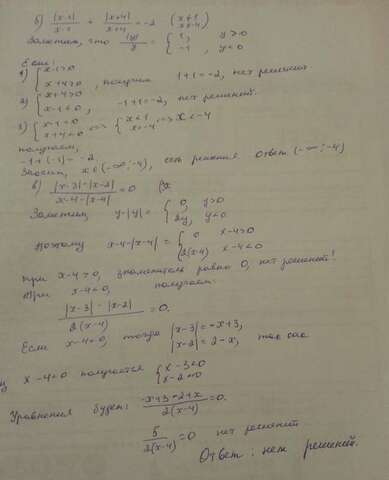 б) |x-1|/(x-1) + |x+4|/(x+4) = -2 (x≠1 x≠-4)
Заметим, что |y|/y = { 1, y>0 -1, y<0
Если:
1) { x-1>0 x+4>0, получим 1+1=-2, нет решений
2) { x+4>0 x-1<0, -1+1=-2, нет решений.
3) { x-1<0 x+4<0 <=> { x<1 x<-4 => x<-4
получаем,
-1+(-1)=-2
Значит, x∈(-∞;-4), есть решения Ответ (-∞;-4)
в) (|x-3|-|x-2|)/(x-4-|x-4|) = 0
Заметим, y-|y| = { 0, y>0 2y, y<0
Поэтому x-4-|x-4| = { 0 x-4>0 2(x-4) x-4<0
При x-4>0, знаменатель равно 0, нет решений!
При x-4<0, получаем:
(|x-3|-|x-2|)/(2(x-4)) = 0.
Если x-4<0, тогда |x-3|=-x+3,
|x-2|=2-x, так как
x-4<0 получается { x-3<0 x-2<0
Уравнения будет: (-x+3-2+x)/(2(x-4)) = 0.
5/(2(x-4)) = 0 нет решений
Ответ: нет решений.